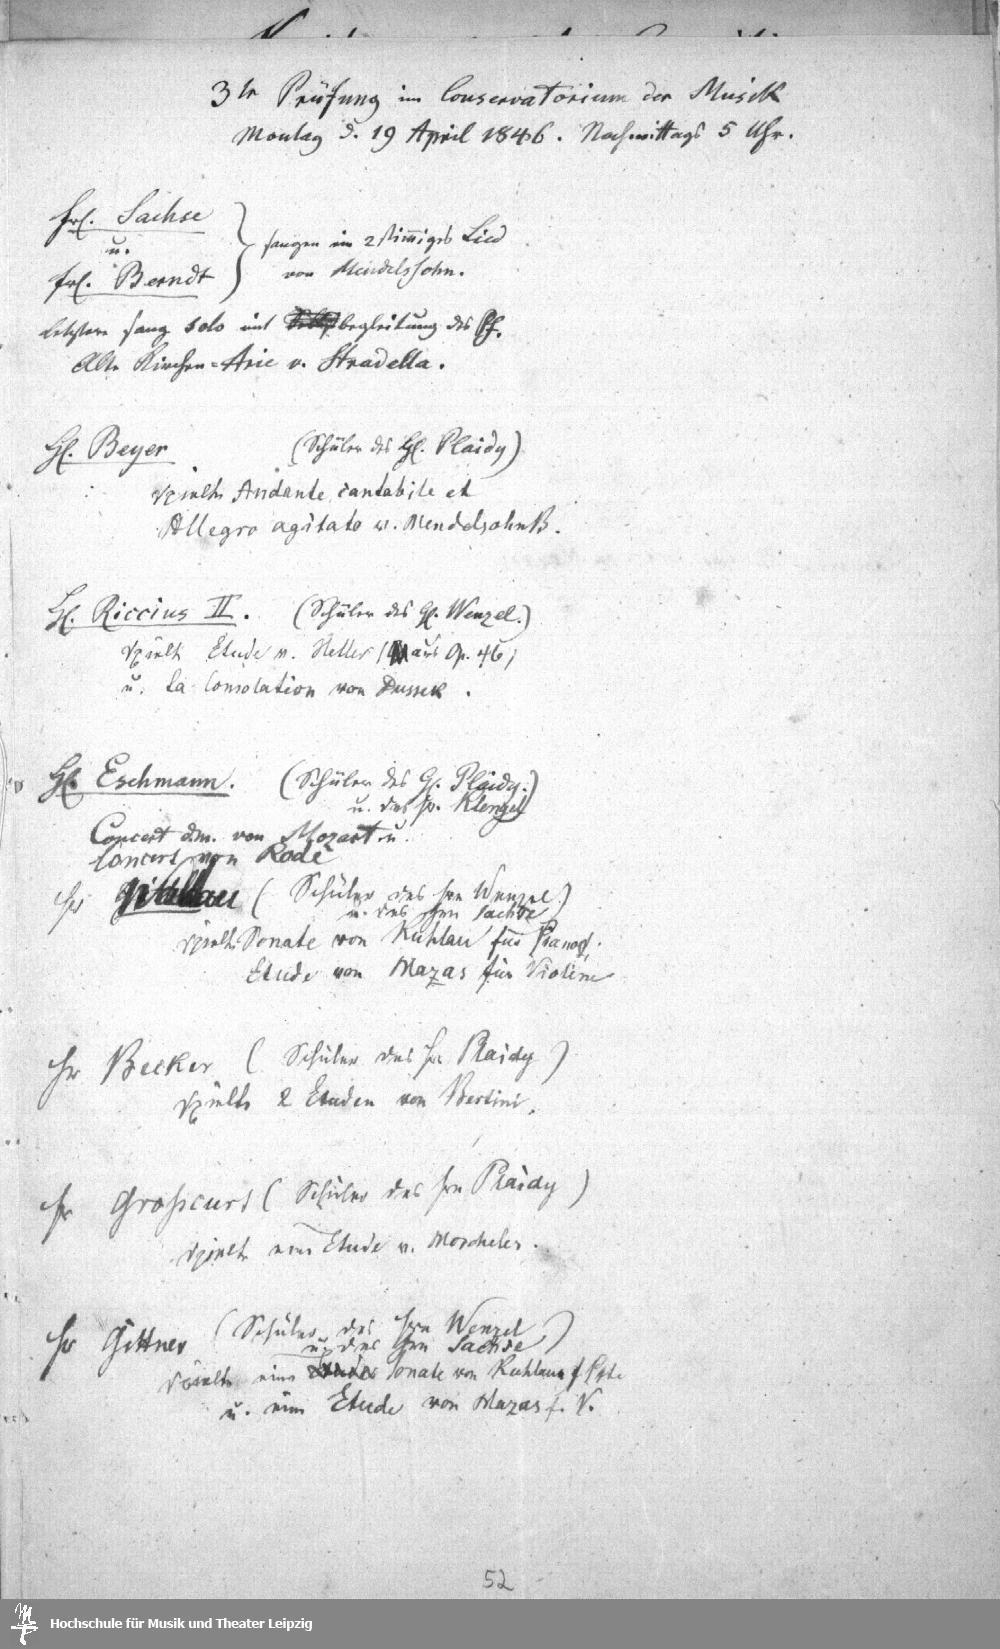 3te Prüfung im Conservatorium der Musik
Montag d. 19 April 1846. Nachmittags 5 Uhr.
Frl. Sachse
u.
Frl. Berndt
sangen ein 2stimmiges Lied
von Mendelssohn.
Letztere sang solo mit begleitung des Pf.
Alte Kirchen=Arie v. Stradella.
H. Beyer (Schüler des H. Plaidy)
spielte Andante cantabile et
Allegro agitato v. Mendelsohnß.
H. Riccius II. (Schüler des H. Wenzel.)
spielte Etude v. Heller (aus Op. 46)
u. La Consolation von Dussek.
H. Eschmann. (Schüler des H. Plaidy.)
u. des Hr. Klengel
Concert dm. von Mozart u.
Concert von Rode
Hr (Schüler des Hrn Wenzel)
u. des Hrn Sachse
spielte Sonate von Kuhlau für Pianof.
Etude von Mazas für Violine
Hr Becker (Schüler des Hr Plaidy)
spielte 2 Etuden von Bertini.
Hr Grosscurt (Schüler des Hrn Plaidy)
spielte eine Etude v. Moscheles.
Hr Gittner (Schüler des Hrn Wenzel)
u. des Hrn Sachse
spielte eine Sonate von Kuhlau f Pfte
u. eine Etude von Mazas f. V.
52
Hochschule für Musik und Theater Leipzig